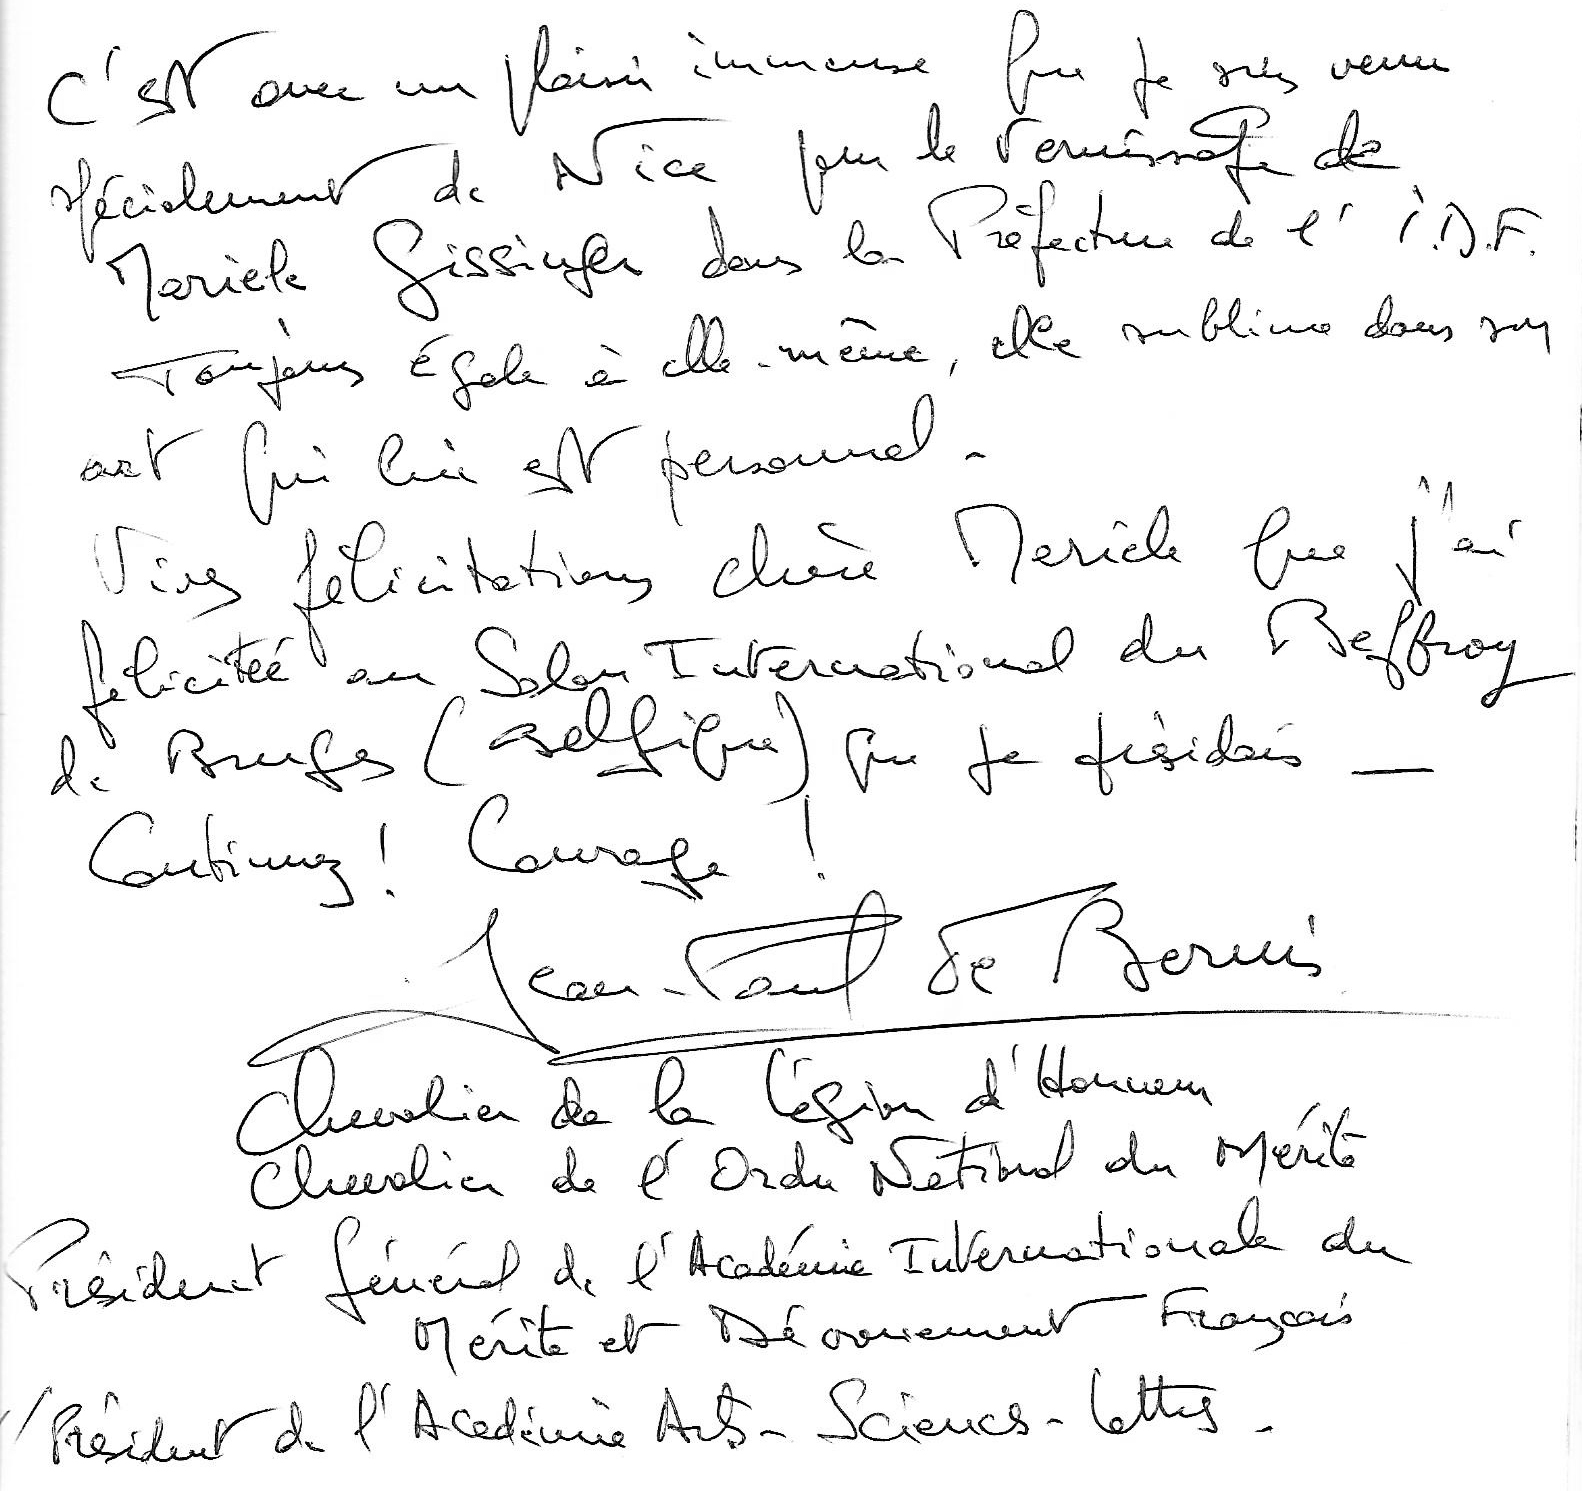 C'est avec un plaisir immense que je suis venu
spécialement de Nice pour le vernissage de
Mariele Gissinger dans la Préfecture de l' I.D.F.
Toujours égale à elle-même, elle sublime dans son
art qui lui est personnel -
Vives félicitations chère Mariele que j'ai
félicitée au Salon International du Beffroy
de Bruges (Belgique) que je présidais —
Continuez ! Courage !
Jean-Paul de Bernis
Chevalier de la Légion d'Honneur
Chevalier de l'Ordre National du Mérite
Président Général de l'Académie Internationale du
Mérite et Dévouement Français
Président de l'Académie Arts - Sciences - Lettres -